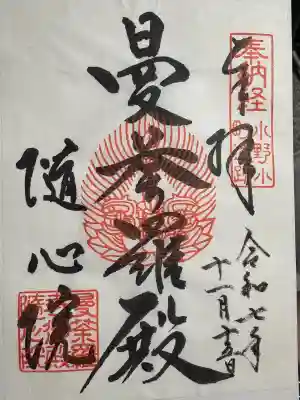 奉拝
奉納経
小野小町
令和七年
十一月十五日
曼荼羅殿
随心院